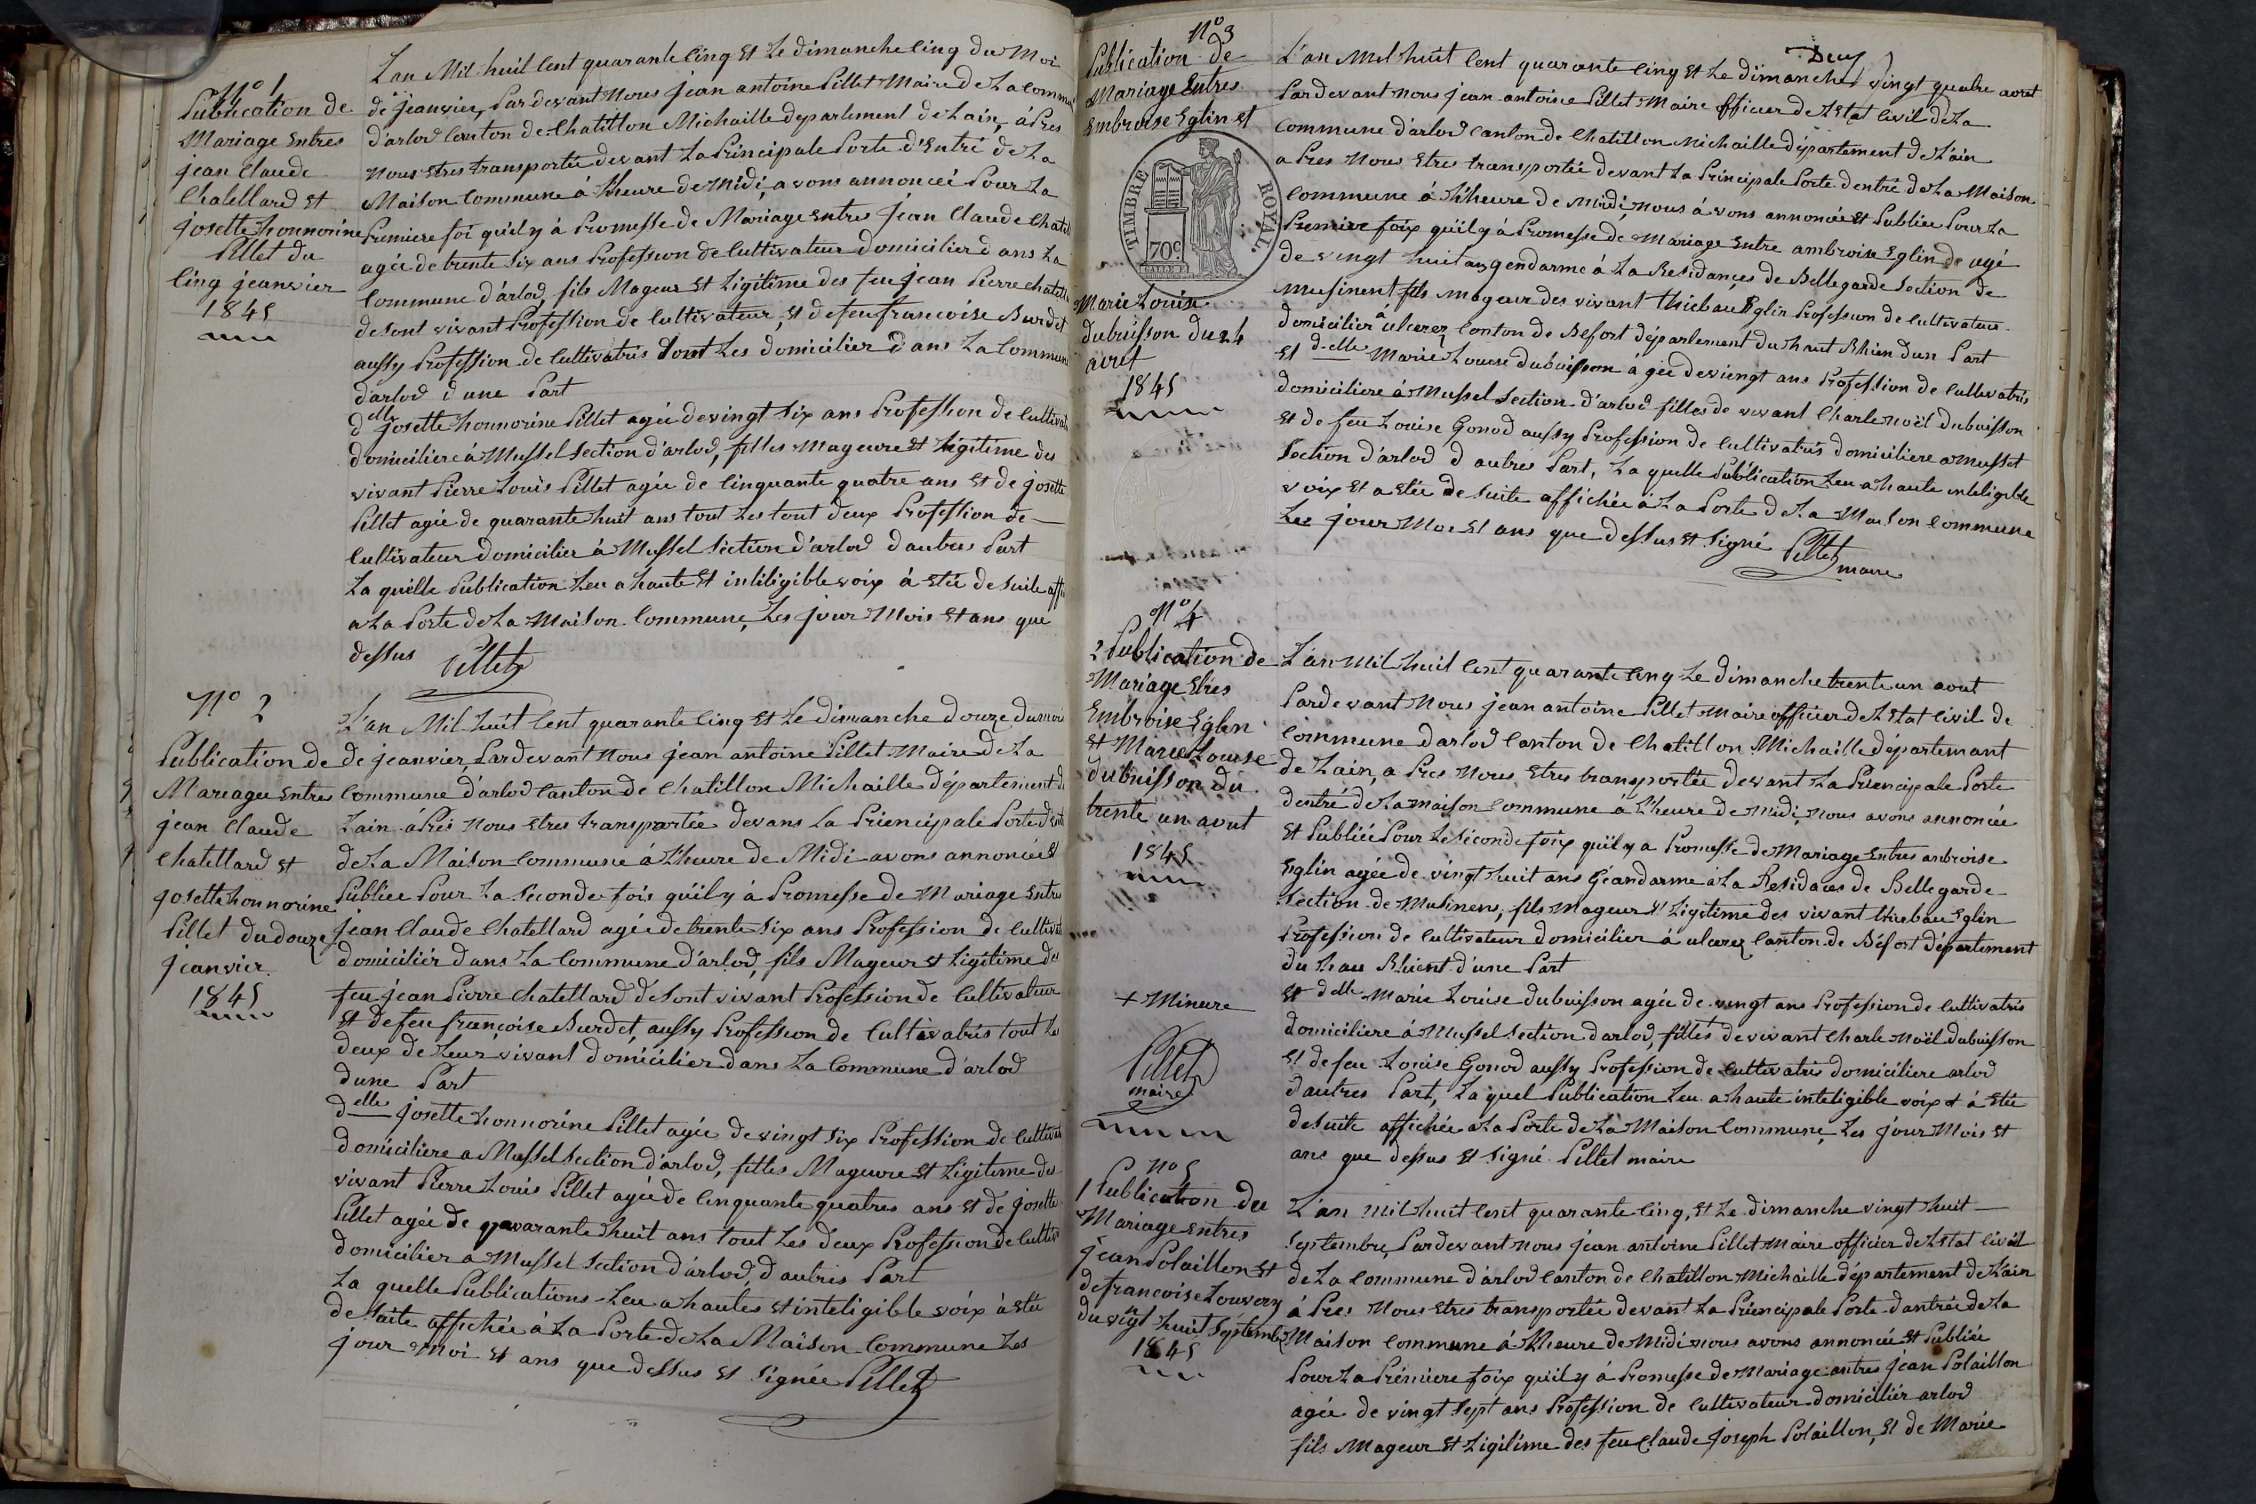 N° 1
Publication de
Mariage Entres
jean Claude
Chatellard et
josette honnorine
Pillet du
Cinq jeanvier
1845
L'an Mil huit Cent quarante Cinq Et Le dimanche Cinq du Moi
de jeanvier, Par devant Nous jean antoine Pillet Maire de La Commu
d'arlod Canton de Chatillon Michaille departement de Lain, à Pres
nous Etres transportée devant La Principale Porte d'Entré de La
Maison Commune á L'heure de Midi, avons annoncéi Pour La
Premiere foi quil y à Promesse de Mariage Entres jean Claude Chatel
agée de trente Six ans Profession de Cultivateur domicilier dans La
Commune d'arlod, fils Mageur Et Ligitime des feu jean Pierre Chatell
de Sont vivant Profession de Cultivateur, Et de feu francoise Burdet
aussy Profession de Cultivatris tout Les domicilier dans La Commune
d'arlod d'une Part
delle josette honnorine Pillet agée de vingt Six ans Profession de Cultivat
domiciliere à Mussel Section d'arlod, filles Mageure Et Ligitime des
vivant Pierre Louis Pillet agée de Cinquante quatre ans Et de josette
Pillet agée de quarante huit ans tout Les tout deux Profession de
Cultivateur domicilier à Mussel Section d'arlod d'autres Part
La quelle Publication Leu a haute Et intiligible voix à Etée de Suite affi
a La Porte de La Maison Commune, Les jour Mois Et ans que
dessus Pillet
N° 2
Publication de
Mariagee Entres
jean Claude
Chatellard et
josette honnorine
Pillet du douze
jeanvier
1845
L'an Mil huit Cent quarante Cinq Et Le dimanche douze du moi
de jeanvier, Par devant Nous jean antoine Pillet Maire de La
Commune d'arlod Canton de Chatillon Michaille département d
Lain à Prés Nous Etres transportée devans La Priencipale Porte d'ent
de La Maison Commune á L'heure de Midi avons annoncée Et
Publiee Pour La Seconde fois quil y à Promesse de Mariage Entres
jean Claude Chatellard agée de trente Six ans Profession de Cultivat
domiciliér dans La Commune d'arlod, fils Mageur Et Ligitime des
feu jean Pierre Chatellard de Sont vivant Profession de Cultivateur
Et de feu françoise Burdet, aussy Profession de Cultivatris tout Les
deux de Leur vivant domicilier dans La Commune d'arlod
dune Part
delle josette honnorine Pillet agée de vingt Six Profession de Cultivat
domiciliere a Mussel Section d'arlod, filles Mageure Et Ligitime des
vivant Pierre Louis Pillet agée de Cinquante quatres ans Et de josette
Pillet agée de quarante huit ans tout Les deux Profession de Cultiv
domicilier a Mussel Section d'arlod, d'autres Part
La quelle Publications Leu a hautes Et inteligible voix à Etée
de Suite affichée à La Porte de La Maison Commune Les
jour Moi Et ans que dessus Et Signée Pillet
N° 3
Publication de
Mariage Entres
Embroise Eglin Et
TIMBRE ROYAL
70c
Marie Louise
dubuisson du 24
avut
1845
Deux
L'an Mil huit Cent quarante Cinq Et Le dimanche vingt quatre avut
Par devant nous jean antoine Pillet Maire officier de L'Etat Civil de La
Commune d'arlod Canton de Chatillon Michaille département de L'ain
a Pres Nous Etres transportée devant La Principale Porte d'entré de La Maison
Commune á L'heure de Midi, nous á vons annoncée Et Publiee Pour La
Premiere foix qu'il y à Promesse de Mariage Entre ambroise Eglin de agé
de vingt huit ans gendarme à La Residançes de Bellegarde Section de
Musinent, fils mageur des vivant thiebau Eglin Profession de Cultivateur
domicilier a ulcerez Canton de Béfort département du haut Rhien d'un Part
Et delle Marie Louise dubuisson á gée de viengt ans Profession de Cultivatris
domiciliere à Mussel Section d'arlod filles de vivant Charle noël dubuisson
Et de feu Louise Gonod aussy Profession de Cultivatris domiciliere a Mussel
Section d'arlod d'autres Part, La quelle Publication Leu a haute inteligible
voix Et a Etée de Suite affichée à La Porte de La Maison Commune
Les jour Moi Et ans que dessus Et Signé Pillet
maire
N° 4
2 Publication de
Mariage Etres
Embroise Eglen
Et Marie Louise
dubuisson du
trente un avut
1845
+ Minure
Pillet
maire
L'an Mil huit Cent quarante Cinq Le dimanche trente un avut
Par devant Nous jean antoine Pillet Maire officier de L'Etat Civil de
Commune d'arlod Canton de Chatillon Michaille départemant
de Lain, a Pres Nous Etres transportée devant La Priencipale Porte
d'entré de La maison Commune a L'heure de Midi, Nous avons annoncée
Et Publiée Pour Le Séconde foix quïl y a Promesse de Mariage Entres ambroise
Eglin agée de vingt huit ans Géandarme à La Residaces de Bellegarde
Section de Musinens, fils Mageur Et Ligitime des vivant thiebau Eglin
Profession de Cultivateur domicilier à ulcerez Canton de Béfort département
du hau Rhient d'une Part
Et delle Marie Louise dubuisson agée de vingt ans Profession de Cultivatris
domiciliere à Mussel Section d'arlod, filles + de vivant Charle Noël dubuisson
Et de feu Louise Gonod aussy Profession de Cultivatris domiciliere arlod
d'autres Part, La quel Publication Leu a haute inteligible voix Et à Etée
de Suite affichée a La Porte de La Maison Commune, Les jour Mois Et
ans que dessus Et Signé Pillet maire
N° 5
1 Publication de
Mariage Entres
jean Polaillon Et
de francoise Louvery
du vingt huit Septembre
1845
L'an Mil huit Cent quarante Cinq, Et Le dimanche vingt huit
Septembre, Par devant Nous jean antoine Pillet Maire officier de L'Etat Civil
de La Commune d'arlod Canton de Chatillon Michaille département de L'ain
á Prés Nous Etres transportée devant La Priencipale Porte d'antrée de La
Maison Commune á L'heure de Midi nous avons annoncée Et Publiée
Pour La Prémiere foix quïl y à Promesse de Mariage antres jean Polaillon
agée de vingt Sept ans Profession de Cultivateur domiciliér arlod
fils Mageur Et Ligitime des feu Claude Joseph Polaillon, Et de Marie